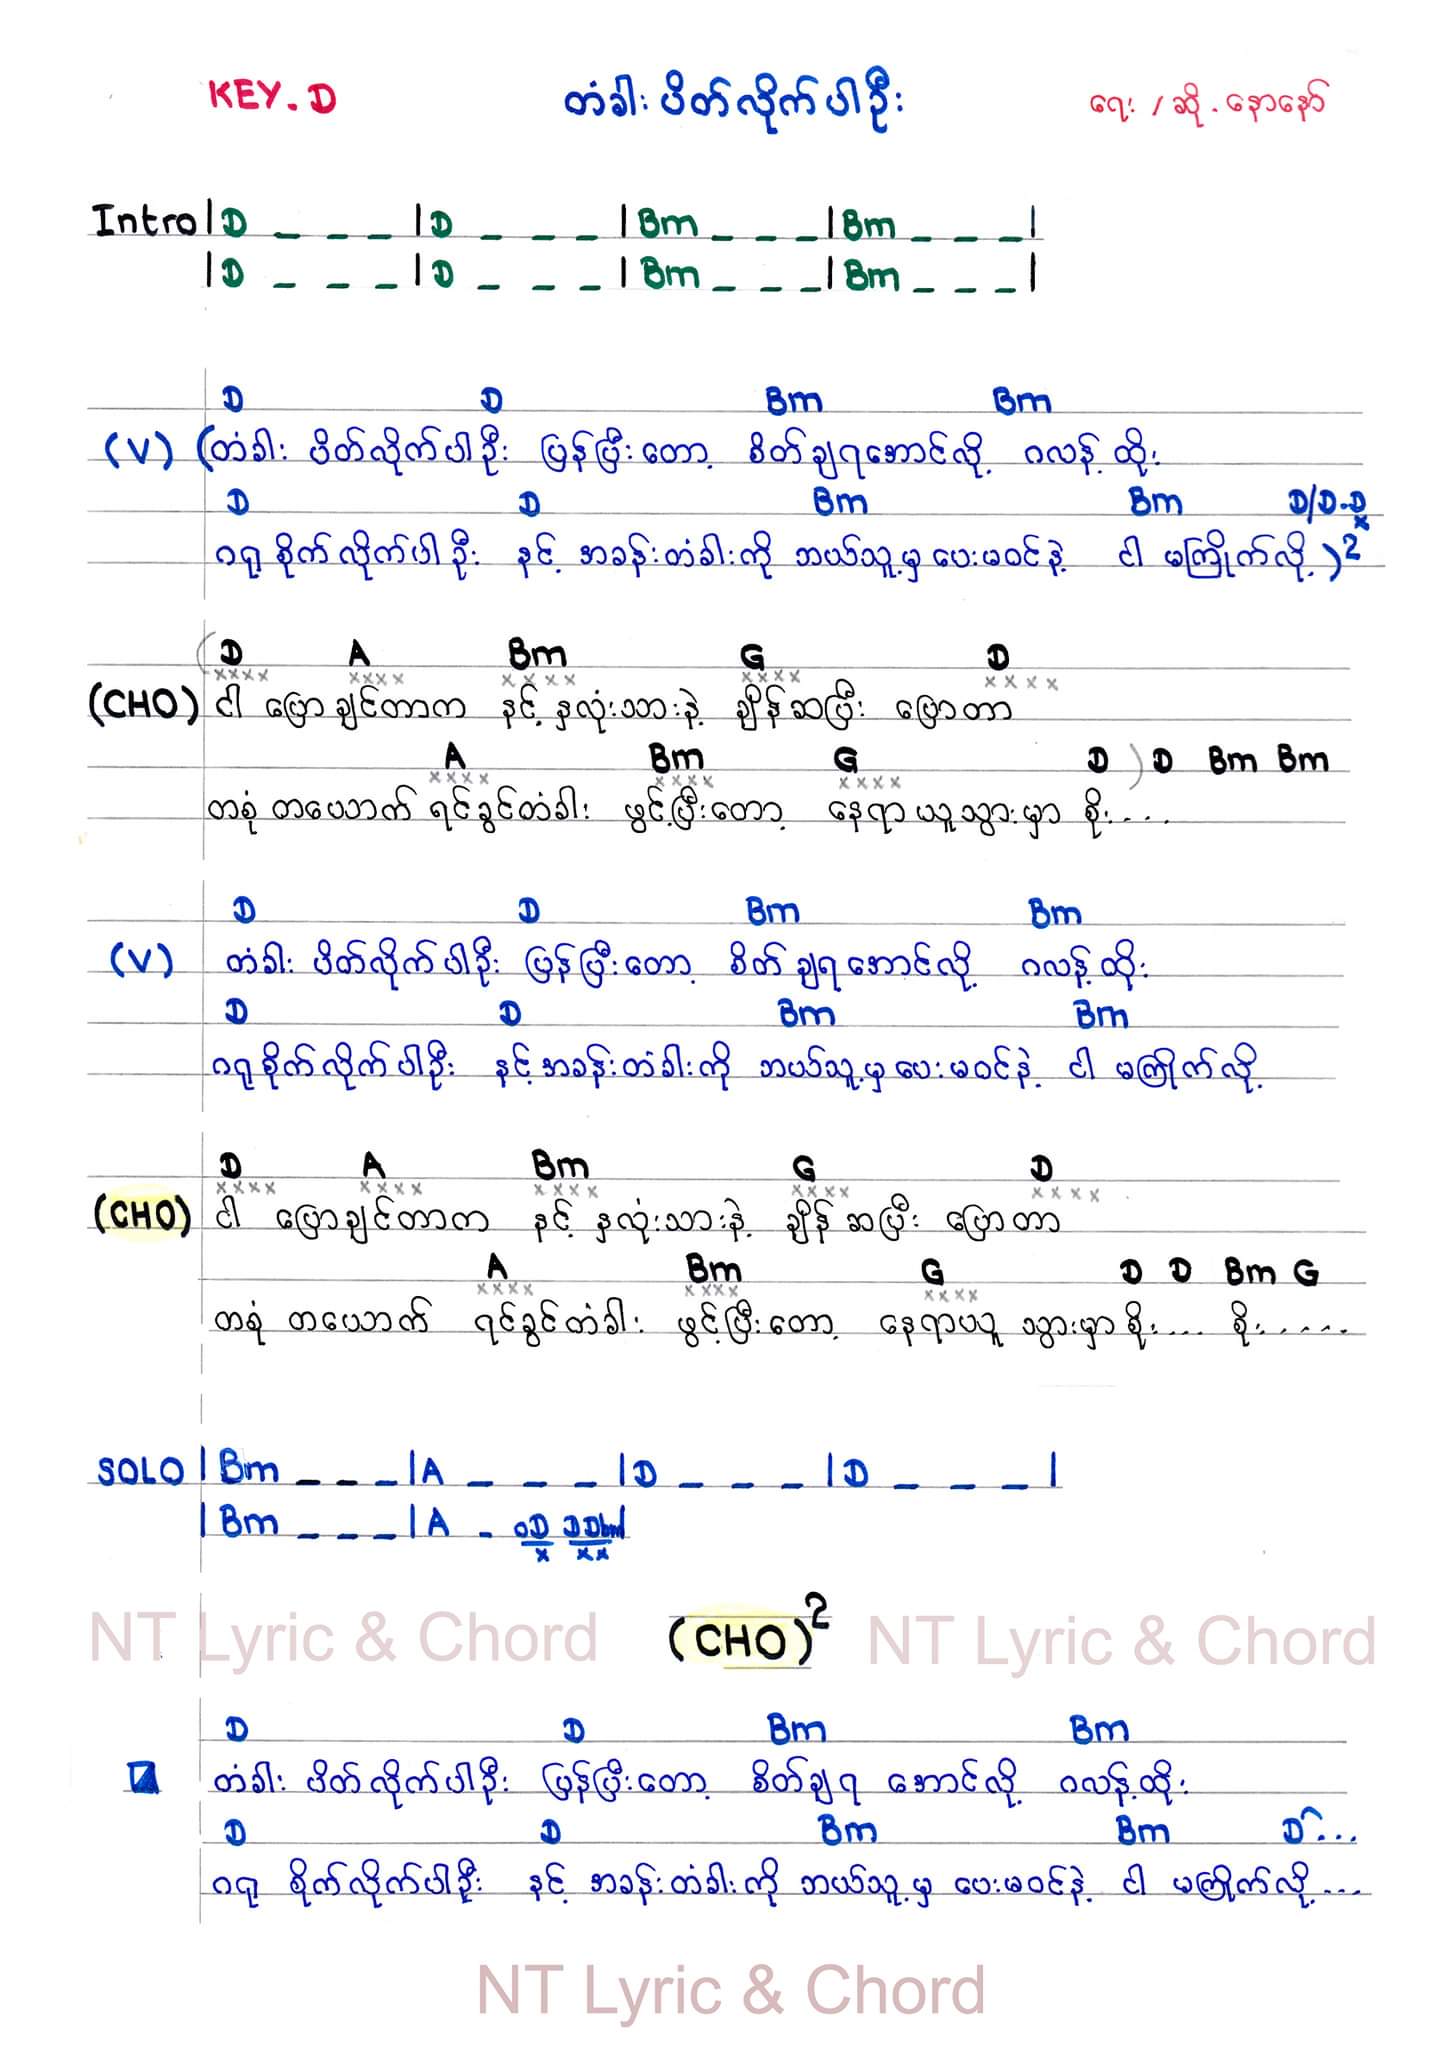 KEY. D တံခါး ပိတ်လိုက်ပါဦး ရေး / ဆို . နောနော်
Intro | D _ _ _ | D _ _ _ | Bm _ _ _ | Bm _ _ _ |
| D _ _ _ | D _ _ _ | Bm _ _ _ | Bm _ _ _ |
D D Bm Bm
(V) (တံခါး ပိတ်လိုက်ပါဦး ပြန်ပြီးတော့ စိတ်ချရအောင်လို့ ဂလန့် ထိုး
D D Bm Bm D/D-D
x
ဂရု စိုက်လိုက်ပါဦး နင့် အခန်းတံခါးကို ဘယ်သူ့မှ ပေးမဝင်နဲ့ ငါ မကြိုက်လို့ )2
( D A Bm G D
xxxx xxxx xxxx xxxx xxxx
(CHO) ငါ ပြောချင်တာက နင့် နှလုံးသားနဲ့ ချိန်ဆပြီး ပြောတာ
A Bm G D ) D Bm Bm
xxxx xxxx xxxx
တစုံ တယောက် ရင်ခွင်တံခါး ဖွင့်ပြီးတော့ နေရာယူသွားမှာ စိုး....
D D Bm Bm
(V) တံခါး ပိတ်လိုက်ပါဦး ပြန်ပြီးတော့ စိတ်ချရအောင်လို့ ဂလန့် ထိုး
D D Bm Bm
ဂရုစိုက်လိုက်ပါဦး နင့်အခန်းတံခါးကို ဘယ်သူ့မှ ပေးမဝင်နဲ့ ငါ မကြိုက်လို့
D A Bm G D
xxxx xxxx xxxx xxxx xxxx
(CHO) ငါ ပြောချင်တာက နင့် နှလုံးသားနဲ့ ချိန်ဆပြီး ပြောတာ
A Bm G D D Bm G
xxxx xxxx xxxx
တစုံ တယောက် ရင်ခွင်တံခါး ဖွင့်ပြီးတော့ နေရာယူ သွားမှာစိုး.... စိုး......
SOLO | Bm _ _ _ | A _ _ _ | D _ _ _ | D _ _ _ |
| Bm _ _ _ | A -
x xx
NT Lyric & Chord (CHO)2 NT Lyric & Chord
D D Bm Bm
တံခါး ပိတ်လိုက်ပါဦး ပြန်ပြီးတော့ စိတ်ချရ အောင်လို့ ဂလန့်ထိုး
D D Bm Bm D...
ဂရု စိုက်လိုက်ပါဦး နင့် အခန်းတံခါးကို ဘယ်သူ့မှ ပေးမဝင်နဲ့ ငါ မကြိုက်လို့....
NT Lyric & Chord